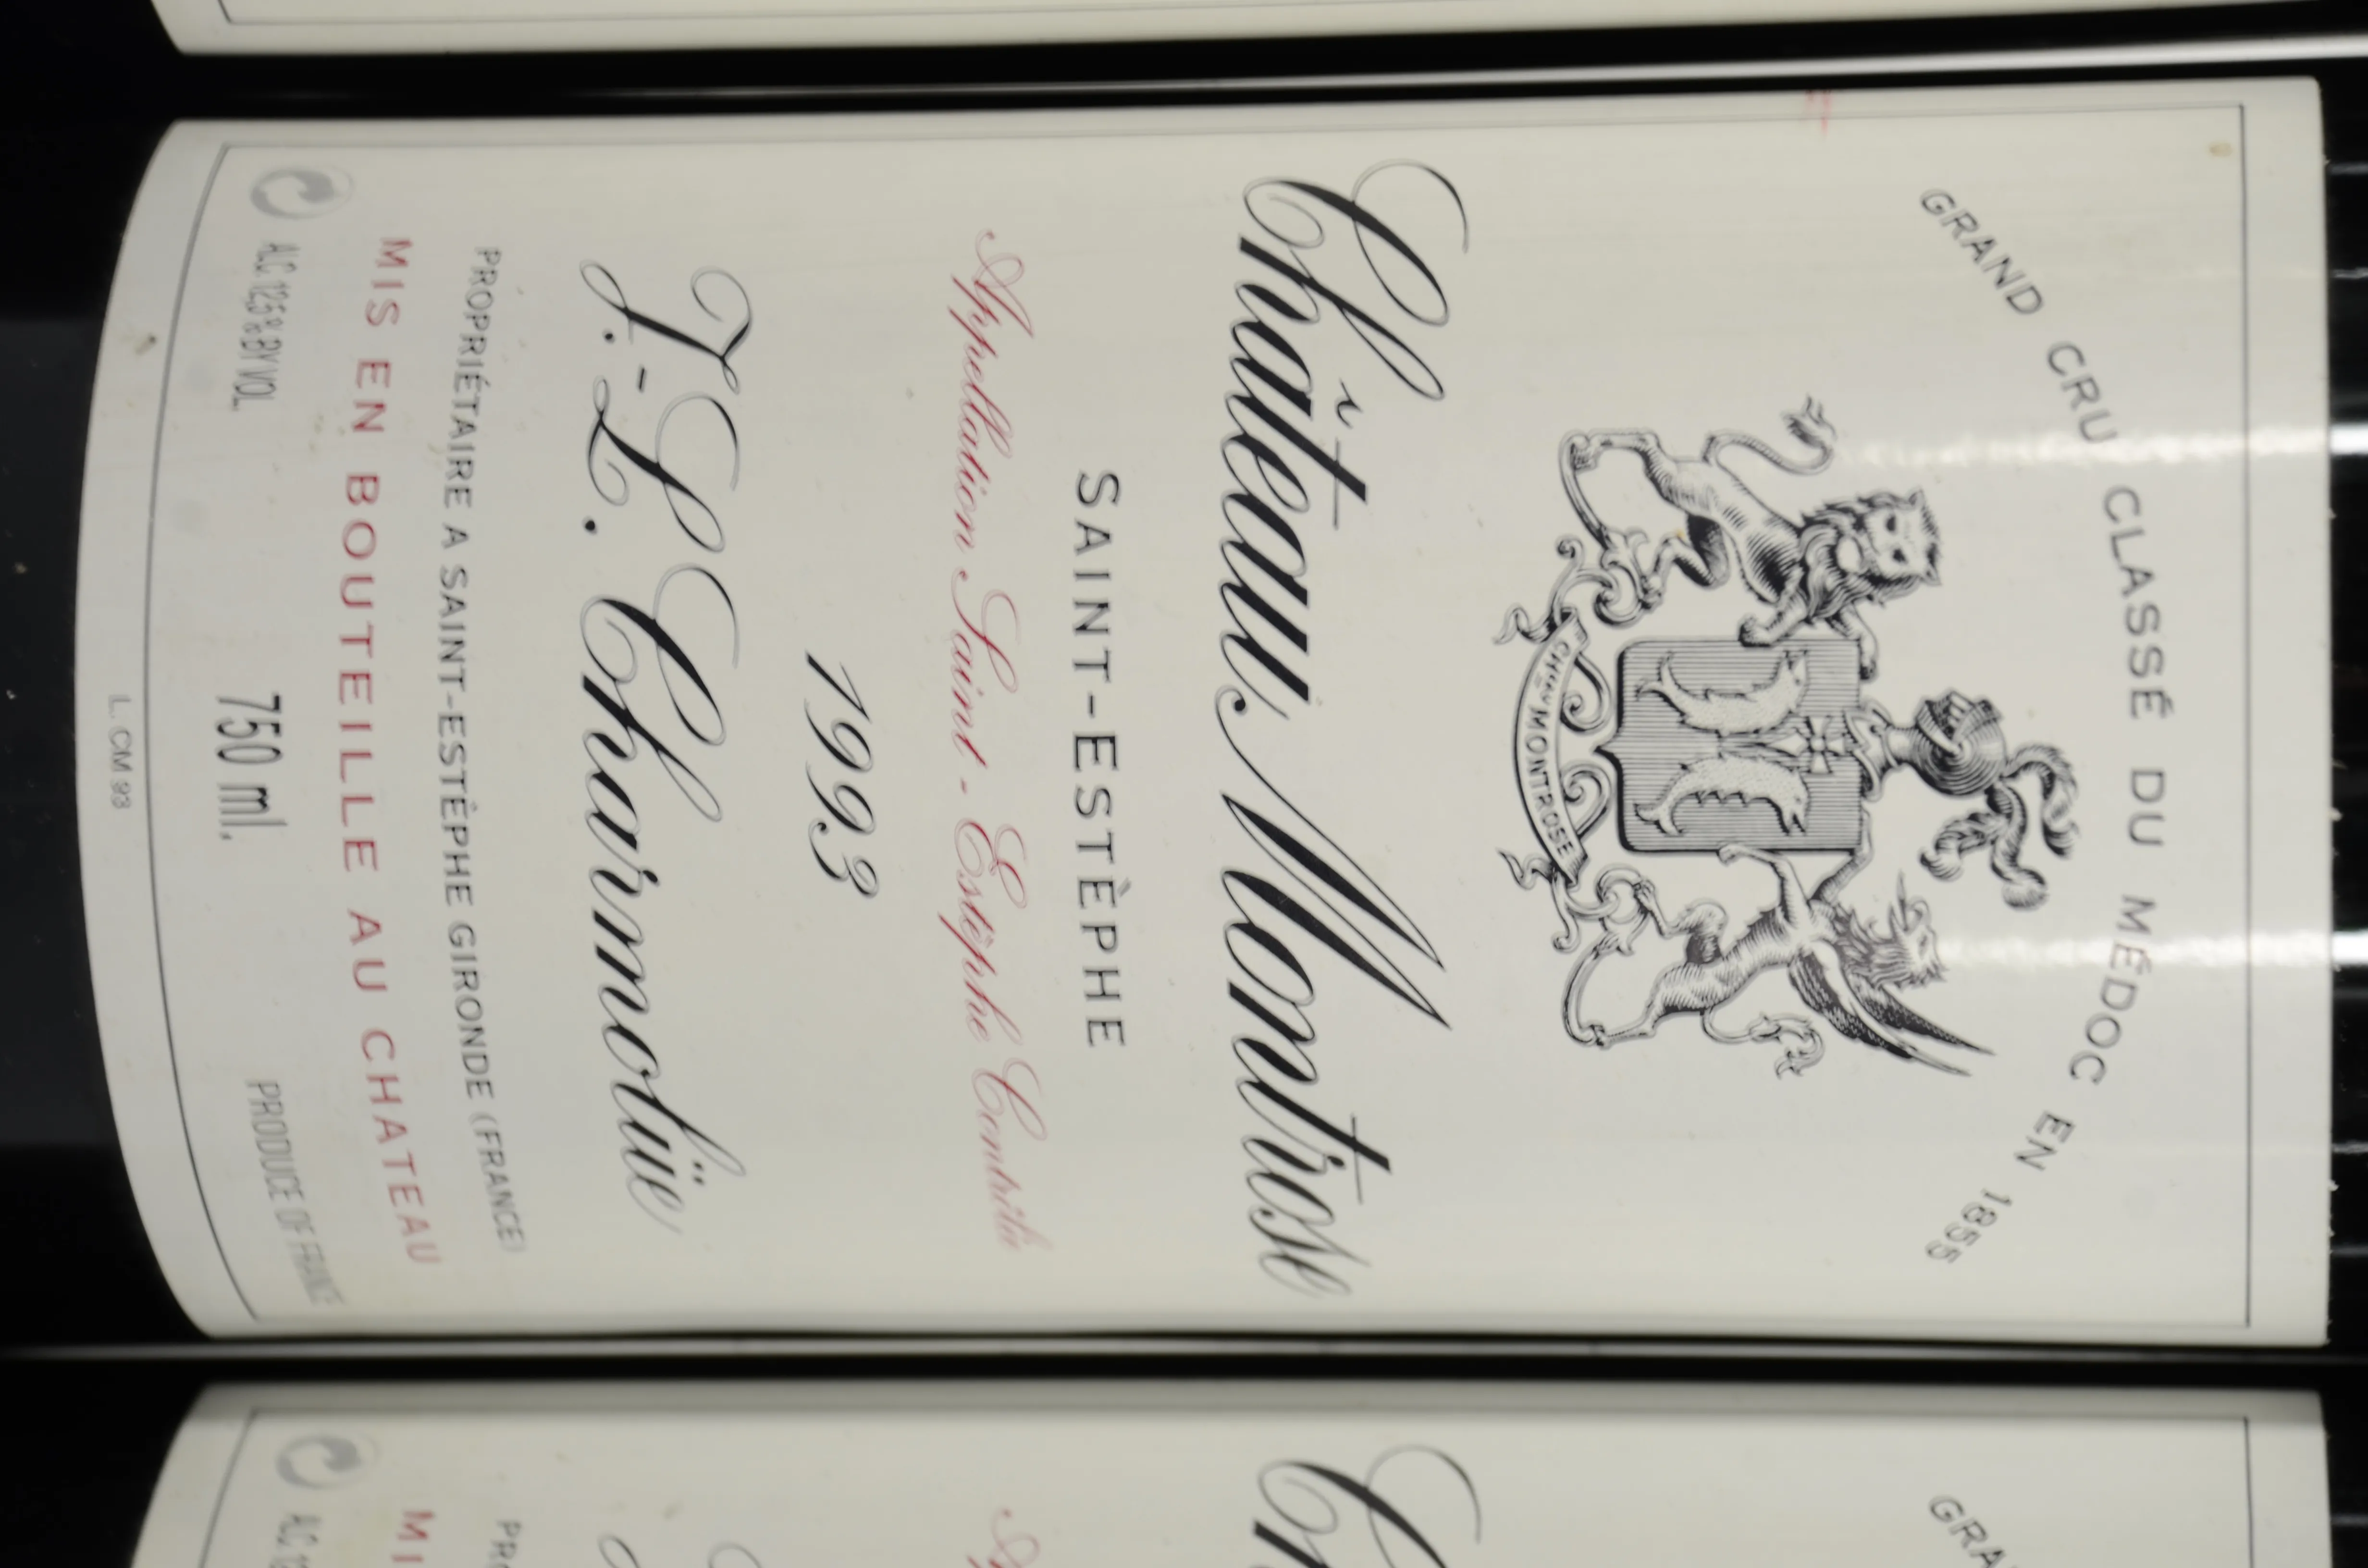 GRAND CRU CLASSÉ DU MÉDOC EN 1855
CHAU MONTROSE
Château Montrose
SAINT-ESTÈPHE
Appellation Saint-Estèphe Contrôlée
1993
J.-L. Charmolüe
PROPRIÉTAIRE A SAINT-ESTÈPHE GIRONDE (FRANCE)
MIS EN BOUTEILLE AU CHATEAU
ALC 12,5 % BY VOL. 750 ml. PRODUCE OF FRANCE
L. CM 93
GRA
Ch
MI
PRO
ALC 12